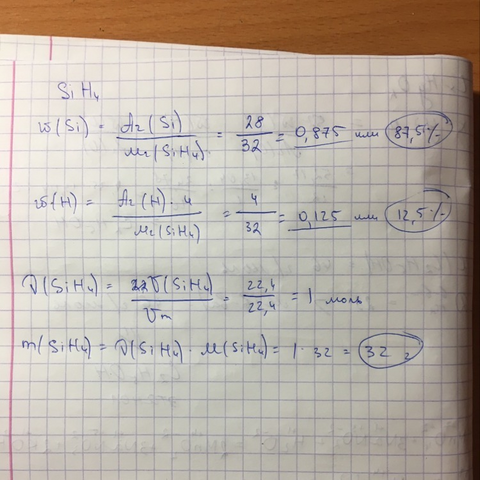 SiH₄
w(Si) = Ar(Si) / Mr(SiH₄) = 28 / 32 = 0,875 или 87,5%
w(H) = Ar(H) · 4 / Mr(SiH₄) = 4 / 32 = 0,125 или 12,5%
ν(SiH₄) = V(SiH₄) / Vm = 22,4 / 22,4 = 1 моль
m(SiH₄) = ν(SiH₄) · M(SiH₄) = 1 · 32 = 32 г